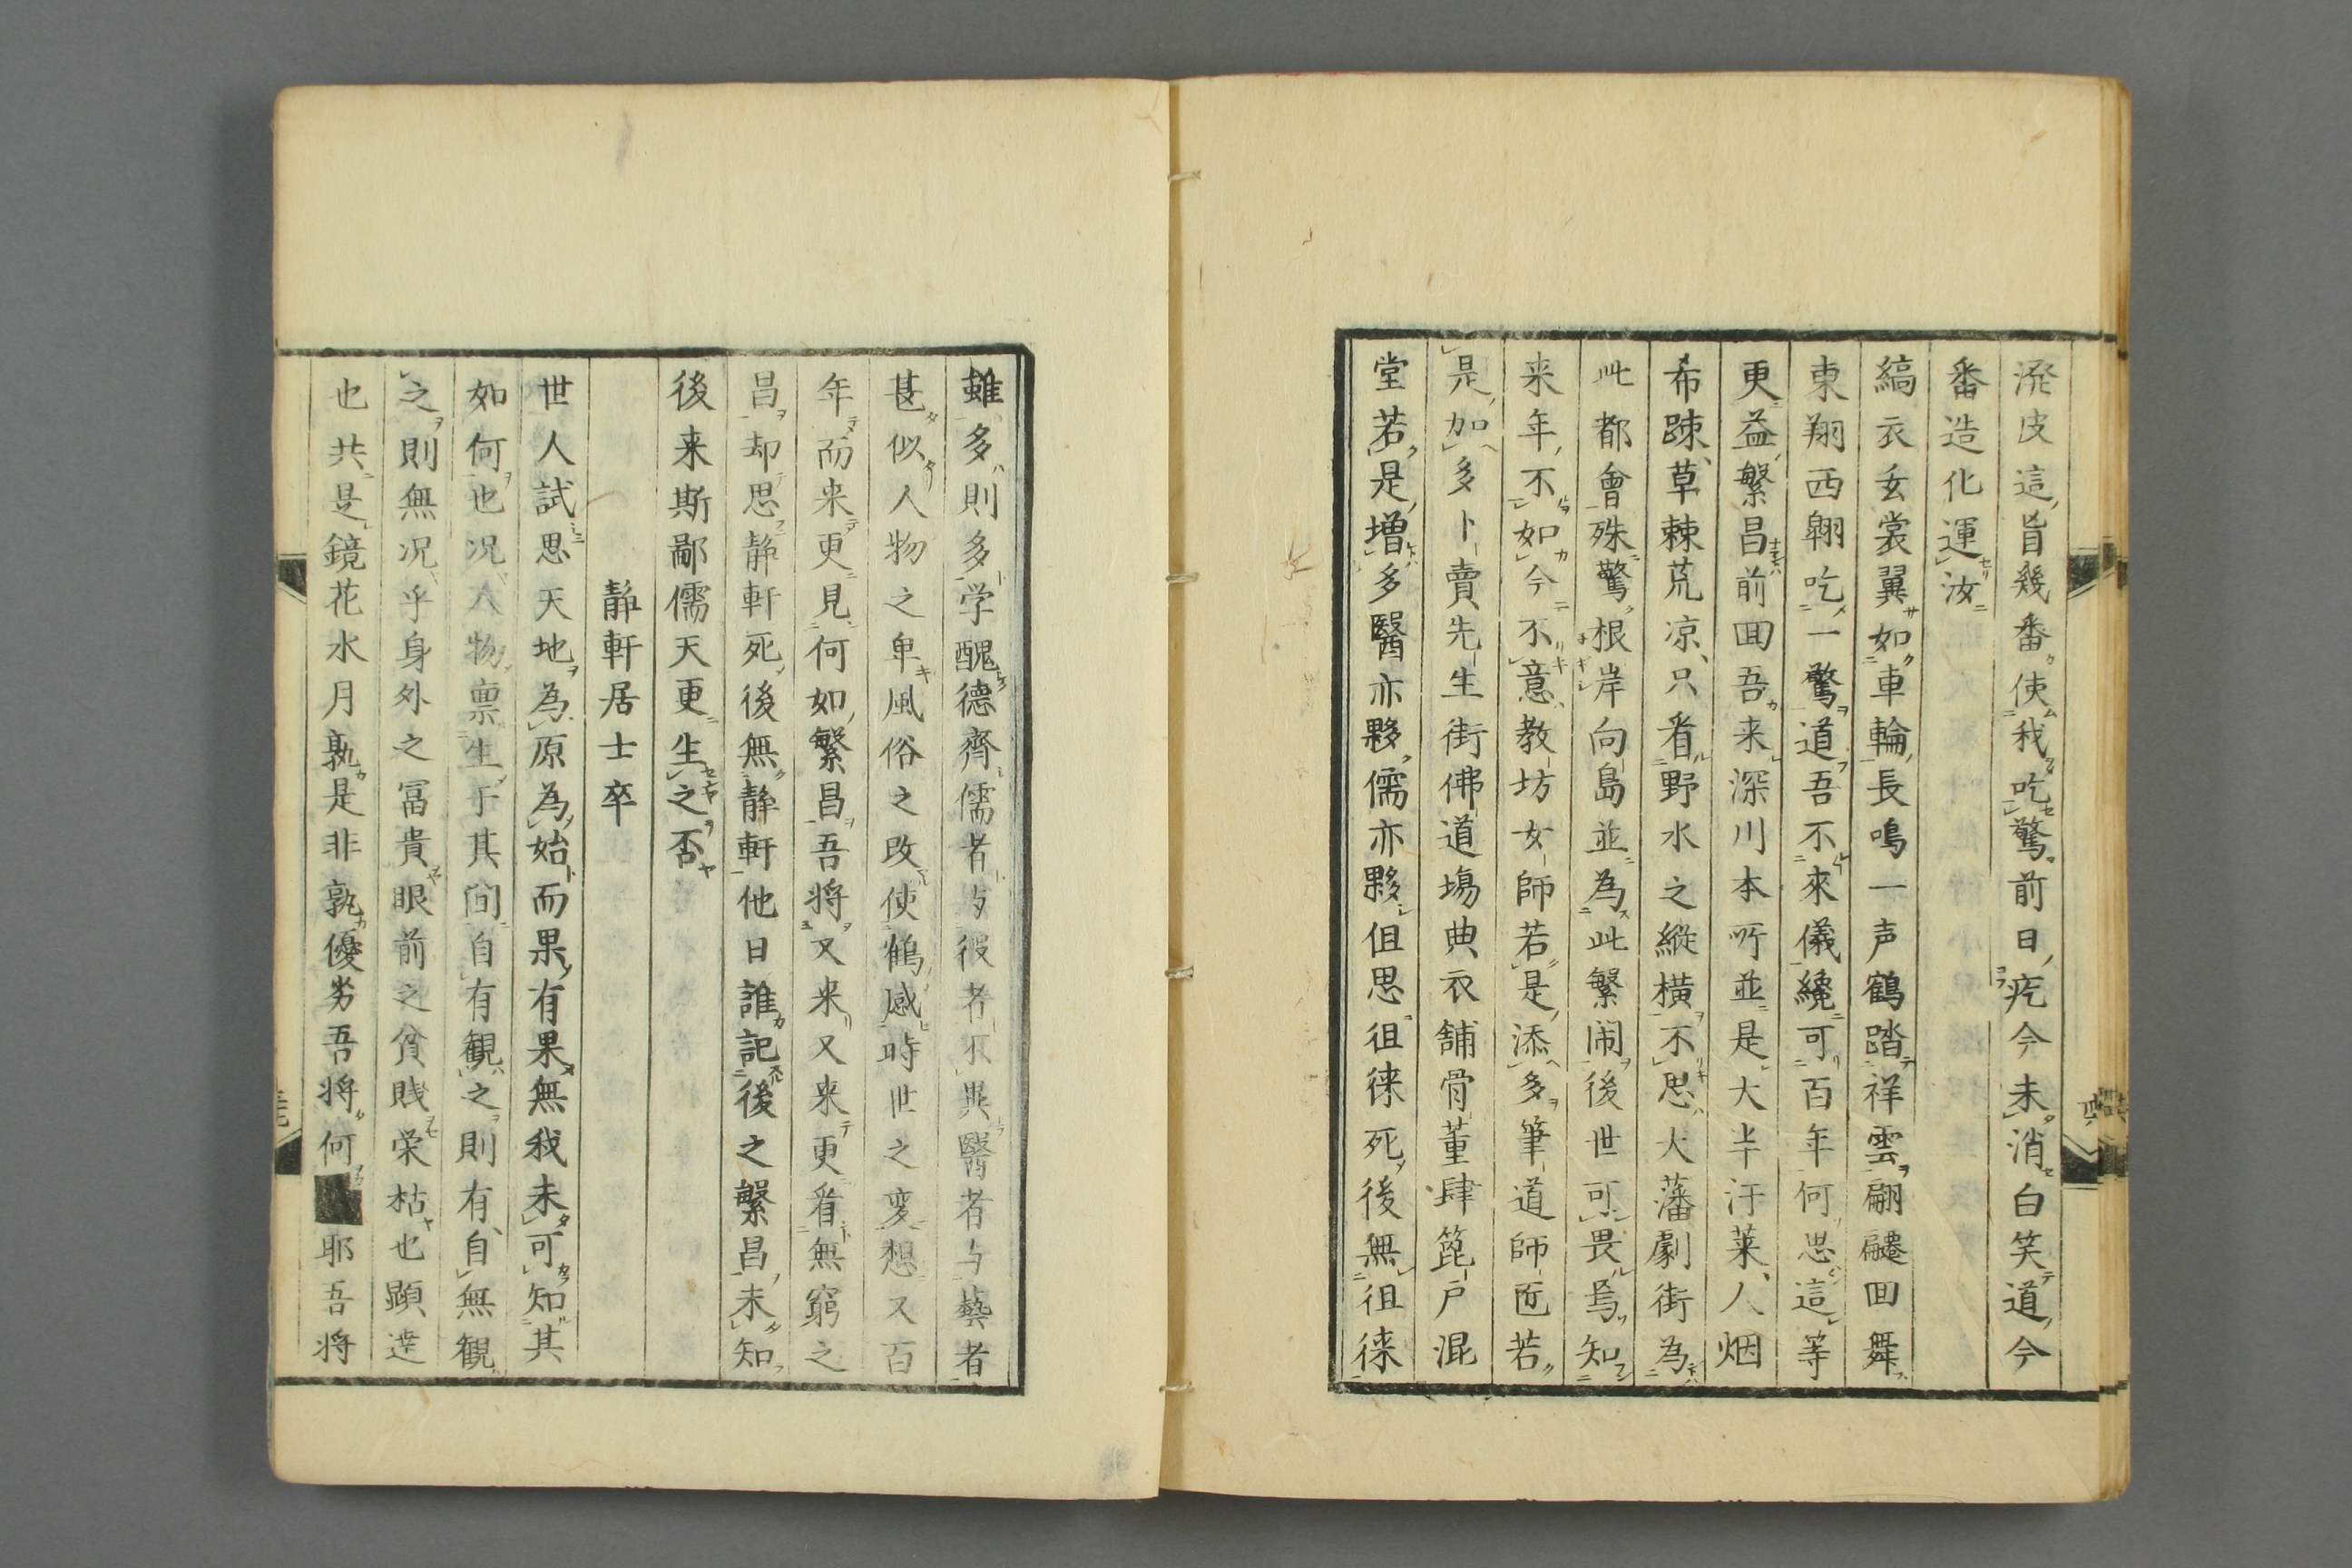 潑皮這旨幾番使我吃驚前日疙今未消白笑道今
番造化運汝
縞衣玄裳翼如車輪長鳴一声鶴踏祥雲翩韆回舞
東翔西翺吃一驚道吾不來儀纔可百年何思這等
更益繁昌前回吾来深川本所並是大半汙莱人烟
希踈草棘荒凉只看野水之縱橫不思大藩劇街為
此都會殊驚根岸向島並為此繁閙後世可畏焉知
来年不如今不意教坊女師若是添多筆道師匠若
是加多卜賣先生街佛道塲典衣舖骨董肆箆戸混
堂若是増多醫亦夥儒亦夥但思徂徠死後無徂徠
雖多則多学醜德齊儒者与彼者不異醫者与藝者
甚似人物之卑風俗之改使鶴感時世之変想又百
年而来更見何如繁昌吾将又来又来更看無窮之
昌却思静軒死後無静軒他日誰記後之繁昌未知
後来斯鄙儒天更生之否
静軒居士卒
世人試思天地為原為始而果有果無我未可知其
如何也况人物禀生于其間自有観之則有自無観
之則無况乎身外之冨貴眼前之貧賎栄枯也顕達
也共是鏡花水月孰是非孰優劣吾将何耶吾将